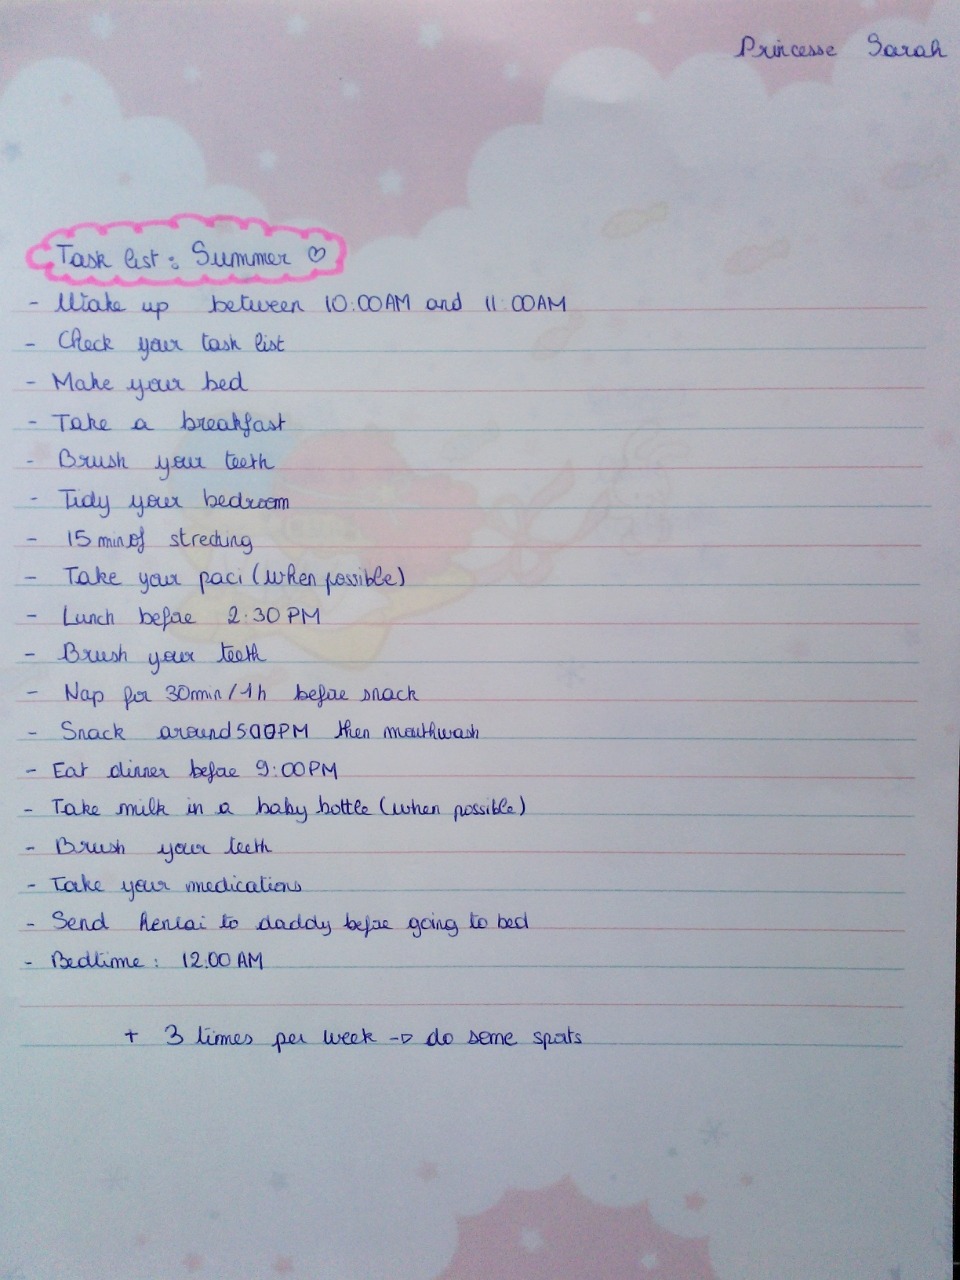 Princesse Sarah
Task list : Summer ♡
- Wake up between 10:00AM and 11:00AM
- Check your task list
- Make your bed
- Take a breakfast
- Brush your teeth
- Tidy your bedroom
- 15 min of streching
- Take your paci (when possible)
- Lunch before 2:30 PM
- Brush your teeth
- Nap for 30min / 1h before snack
- Snack around 5:00PM then mouthwash
- Eat dinner before 9:00PM
- Take milk in a baby bottle (when possible)
- Brush your teeth
- Take your medications
- Send hentai to daddy before going to bed
- Bedtime : 12:00 AM
+ 3 times per week -> do some sports